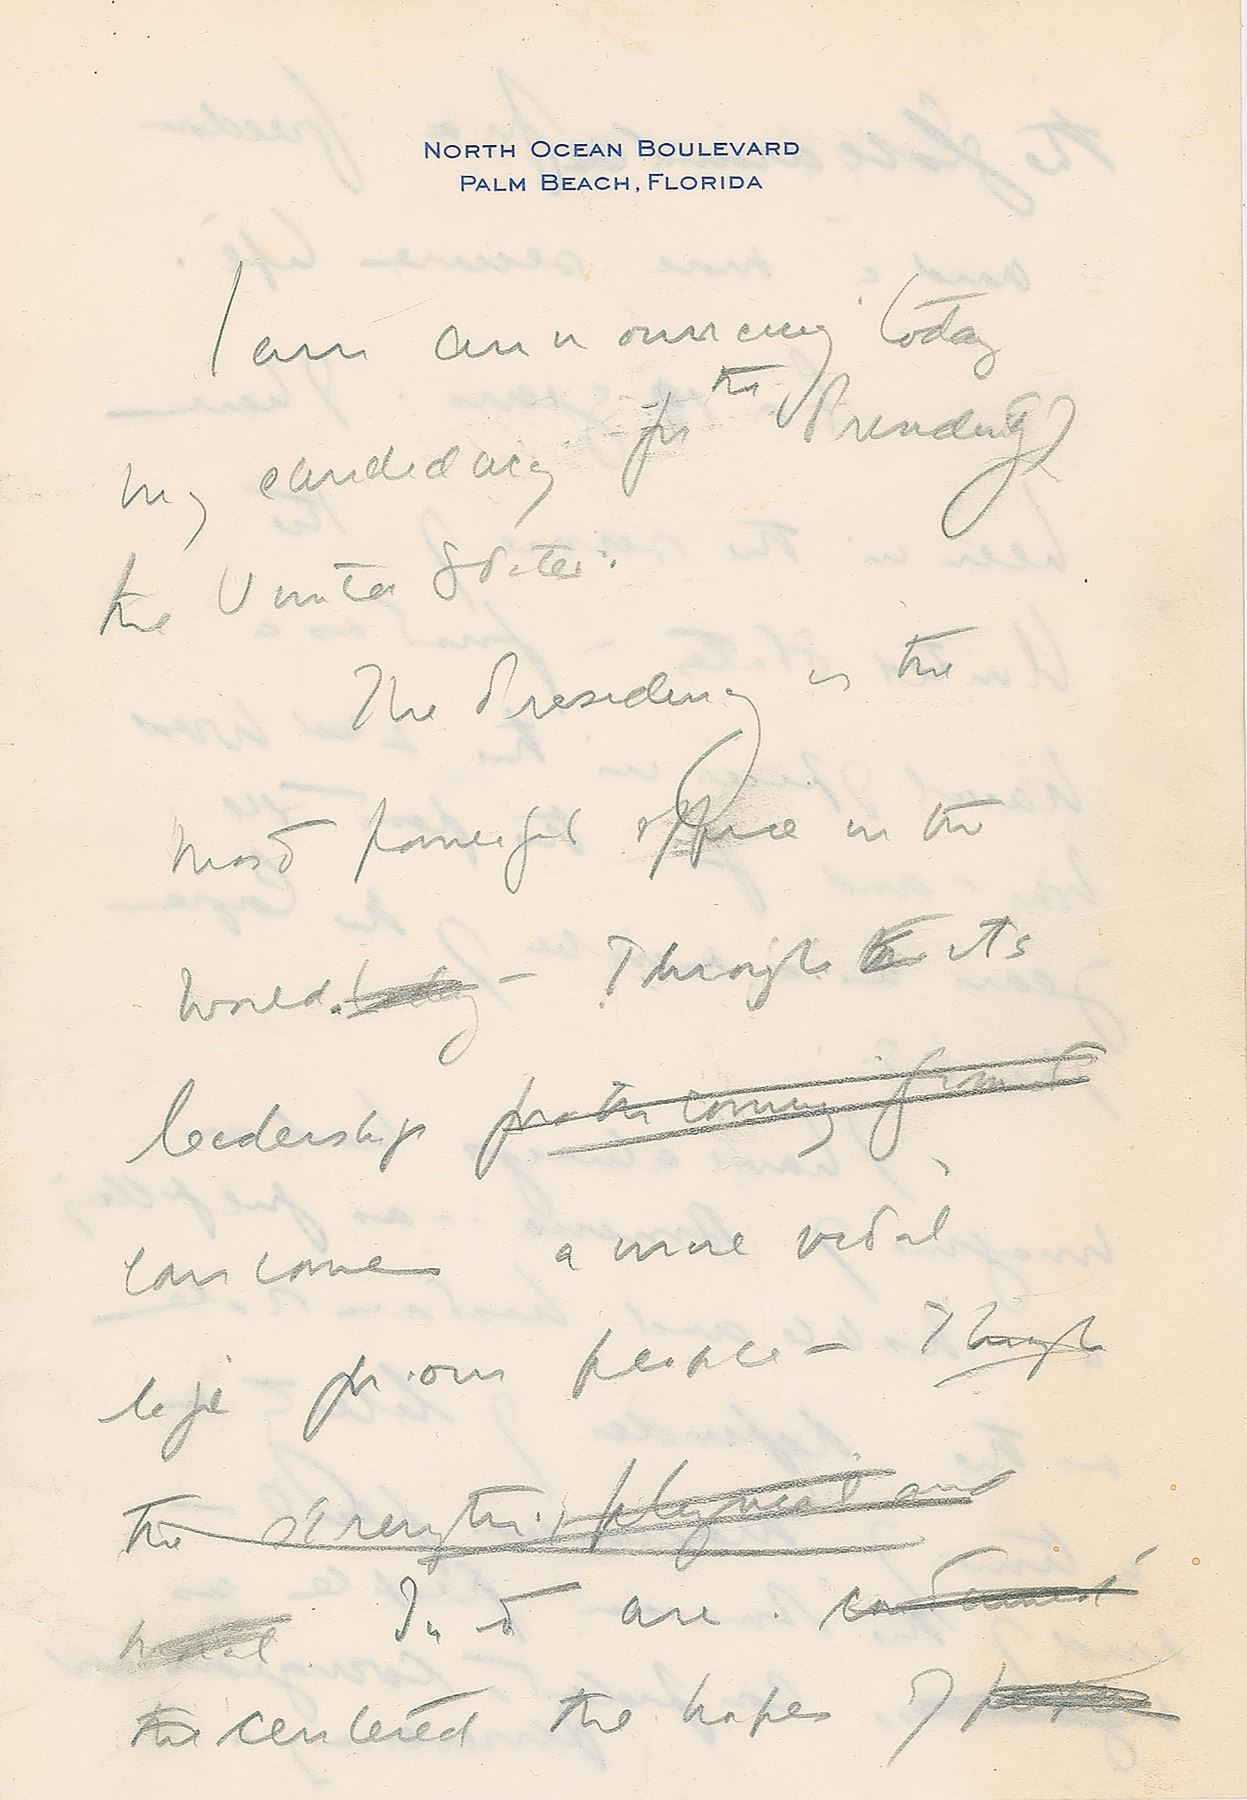 NORTH OCEAN BOULEVARD
PALM BEACH, FLORIDA
I am announcing today
my candidacy for the Presidency of
the United States.
The Presidency is the
most powerful office in the
world. – Through its
leadership for the coming from it
can come a more vital
life for our people – Through
the strength, physical and
moral In it are
the centered the hopes of